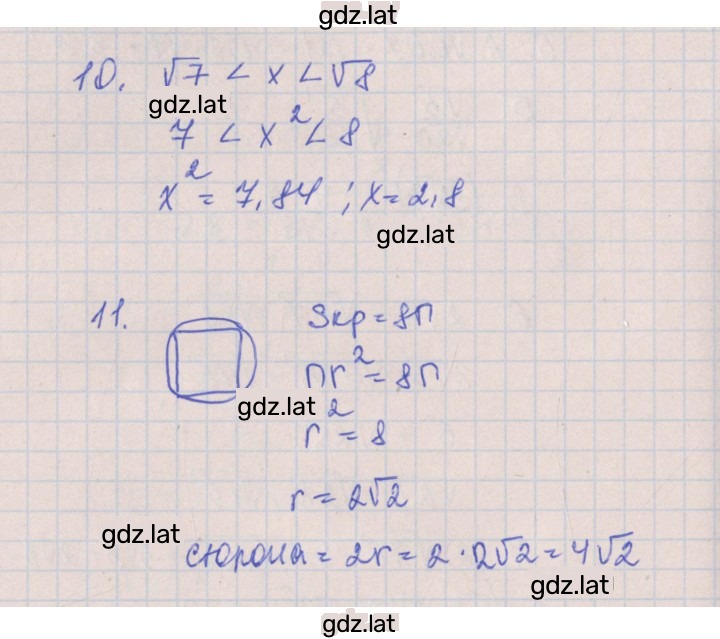 gdz.lat
10. √7 < x < √8
gdz.lat
7 < x² < 8
x² = 7,84 ; x = 2,8
gdz.lat
11. Sкр = 8П
Пr² = 8П
gdz.lat
r² = 8
r = 2√2
gdz.lat
сторона = 2r = 2 · 2√2 = 4√2
gdz.lat
gdz.lat